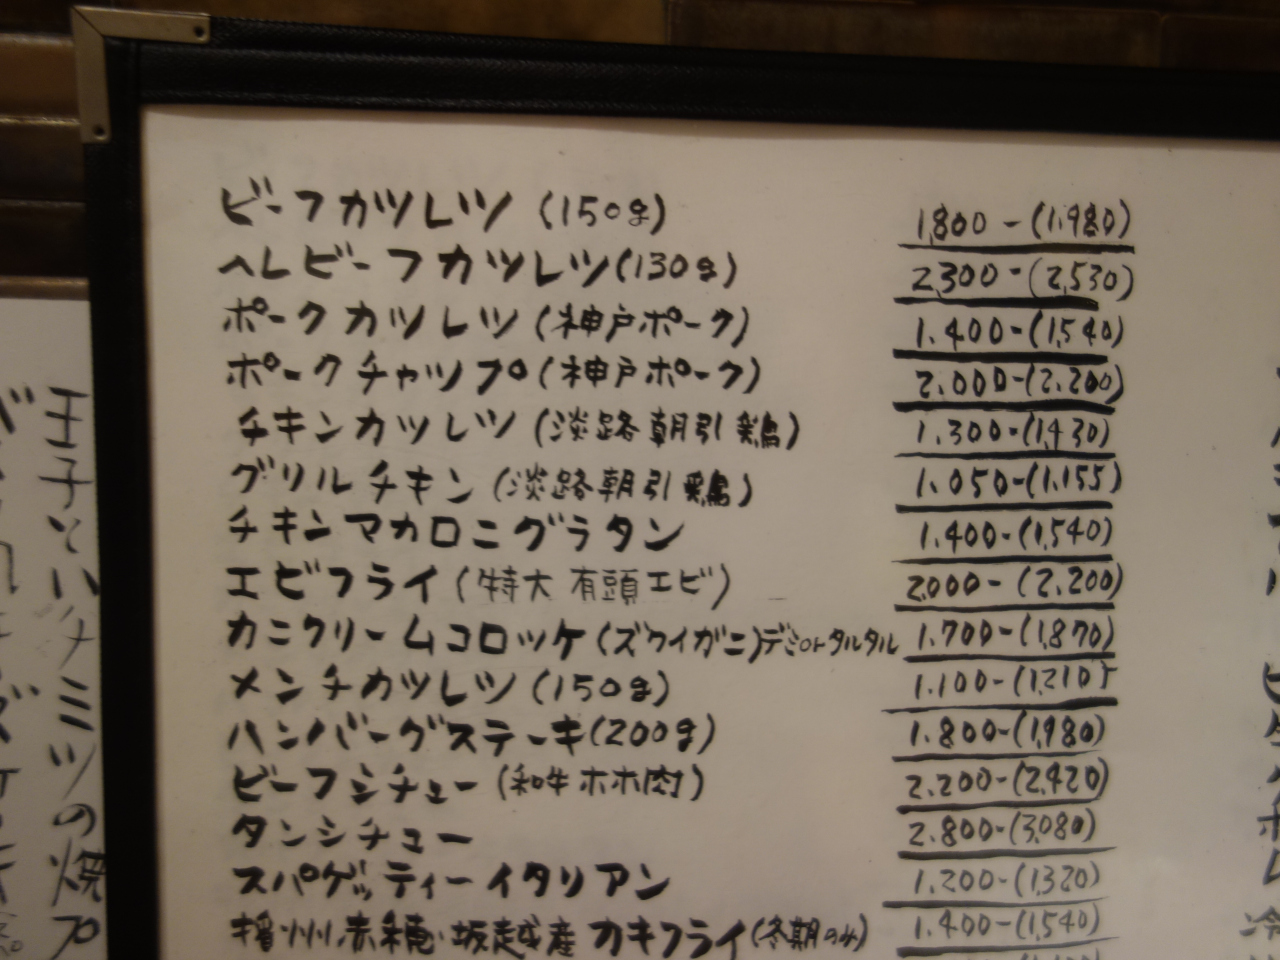 ビーフカツレツ (150g) 1,800-(1,980)
ヘレビーフカツレツ(130g) 2,300-(2,530)
ポークカツレツ(神戸ポーク) 1.400-(1,540)
ポークチャップ(神戸ポーク) 2.000-(2.200)
チキンカツレツ(淡路朝引鶏) 1.300-(1,430)
グリルチキン(淡路朝引鶏) 1.050-(1.155)
チキンマカロニグラタン 1.400-(1,540)
エビフライ(特大有頭エビ) 2000-(2,200)
カニクリームコロッケ(ズワイガニ)デミorタルタル 1.700-(1,870)
メンチカツレツ(150g) 1.100-(1,210)
ハンバーグステーキ(200g) 1.800-(1,980)
ビーフシチュー(和牛ホホ肉) 2.200-(2,420)
タンシチュー 2.800-(3,080)
スパゲッティーイタリアン 1.200-(1,320)
播州赤穂・坂越産カキフライ(冬期のみ) 1.400-(1,540)
王子とハチミツの焼プ